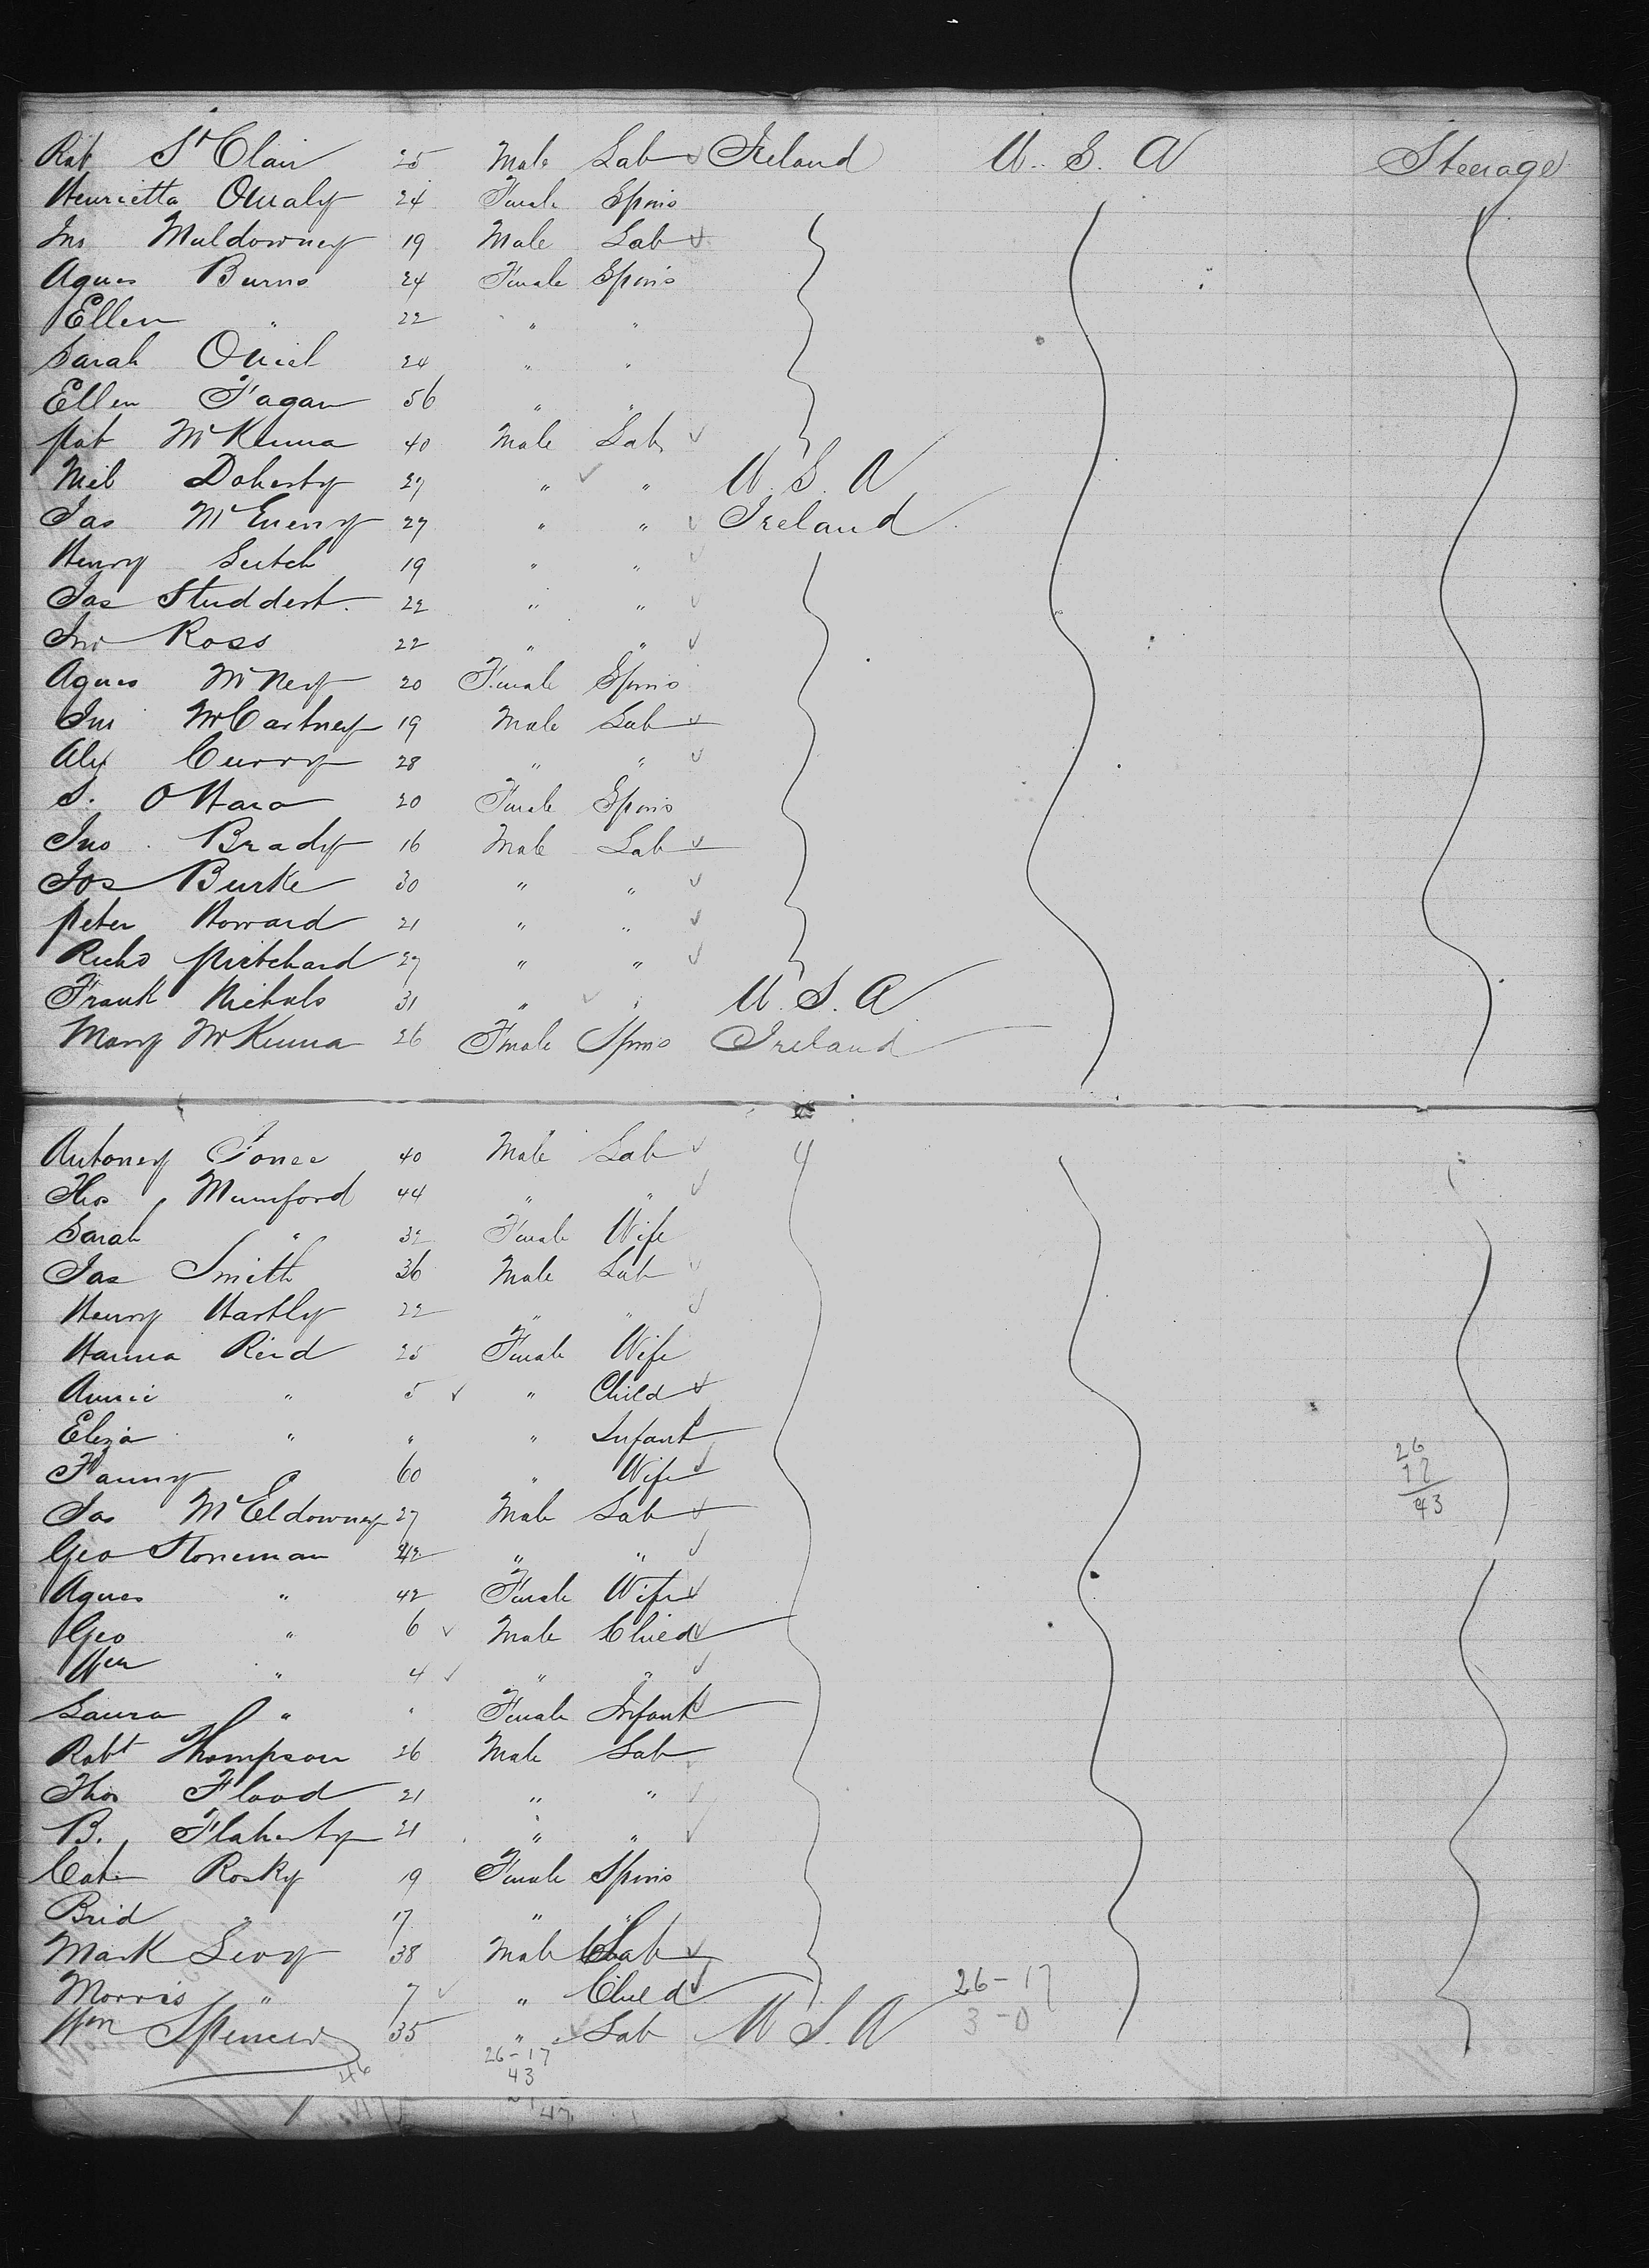 Rob St Clair 25 Male Lab Ireland U. S. A Steerage
Henrietta 24 Female Spins
Jno Muldowney 19 Male Lab
Agnes Burns 24 Female Spins
Ellen " 22 " "
Sarah ONiel 24 " "
Ellen Fagan 56 " "
Pat McKenna 40 Male Lab
Neil Doherty 27 " " U. S. A
Jas 27 " " Ireland
Henry 19 " "
Jas Studdert 22 " "
Jno Ross 22 " "
Agnes McNey 20 Female Spins
Jno McCartney 19 Male Lab
Alex Curry 28 " "
S. O Hara 20 Female Spins
Jno Brady 16 Male Lab
Jos Burke 30 " "
Peter Howard 21 " "
Richd Pritchard 27 " "
Frank Nichols 31 " " U. S. A
Mary McKenna 26 Female Spins Ireland
Antoney Jones 40 Male Lab
Thos Mumford 44 " "
Sarah " 32 Female Wife
Jas Smith 36 Male Lab
Henry Hartly 22 " "
Hanna Reid 25 Female Wife
Annie " 5 " Child
Eliza " " " Infant
Fanny " 60 " Wife
26
17
43
Jas McEldowney 27 Male Lab
Geo Stoneman 42 " "
Agnes " 42 Female Wife
Geo " 6 Male Child
Wm " 4 " "
Laura " " Female Infant
Robt Thompson 26 Male Lab
Thos Flood 21 " "
B. Flaherty 21 " "
Cath Rosky 19 Female Spins
Brid " 17 " "
Mark Levy 38 Male Lab
Morris " 7 " Child 26-17
Wm Spencer 35 " Lab U S. A 3-0
26-17
46 43
47